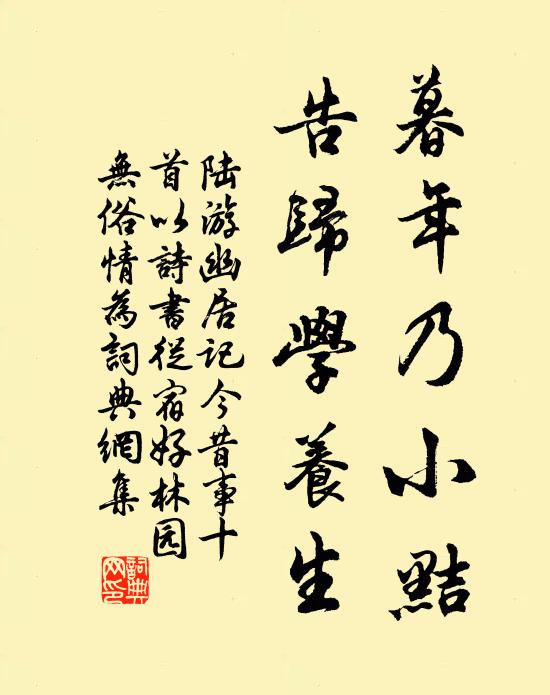 暮年乃小黠
告歸學養生
陆游幽居记今昔事十
首以詩書從宿好林园
無俗情為詞典網集
詞典
网印